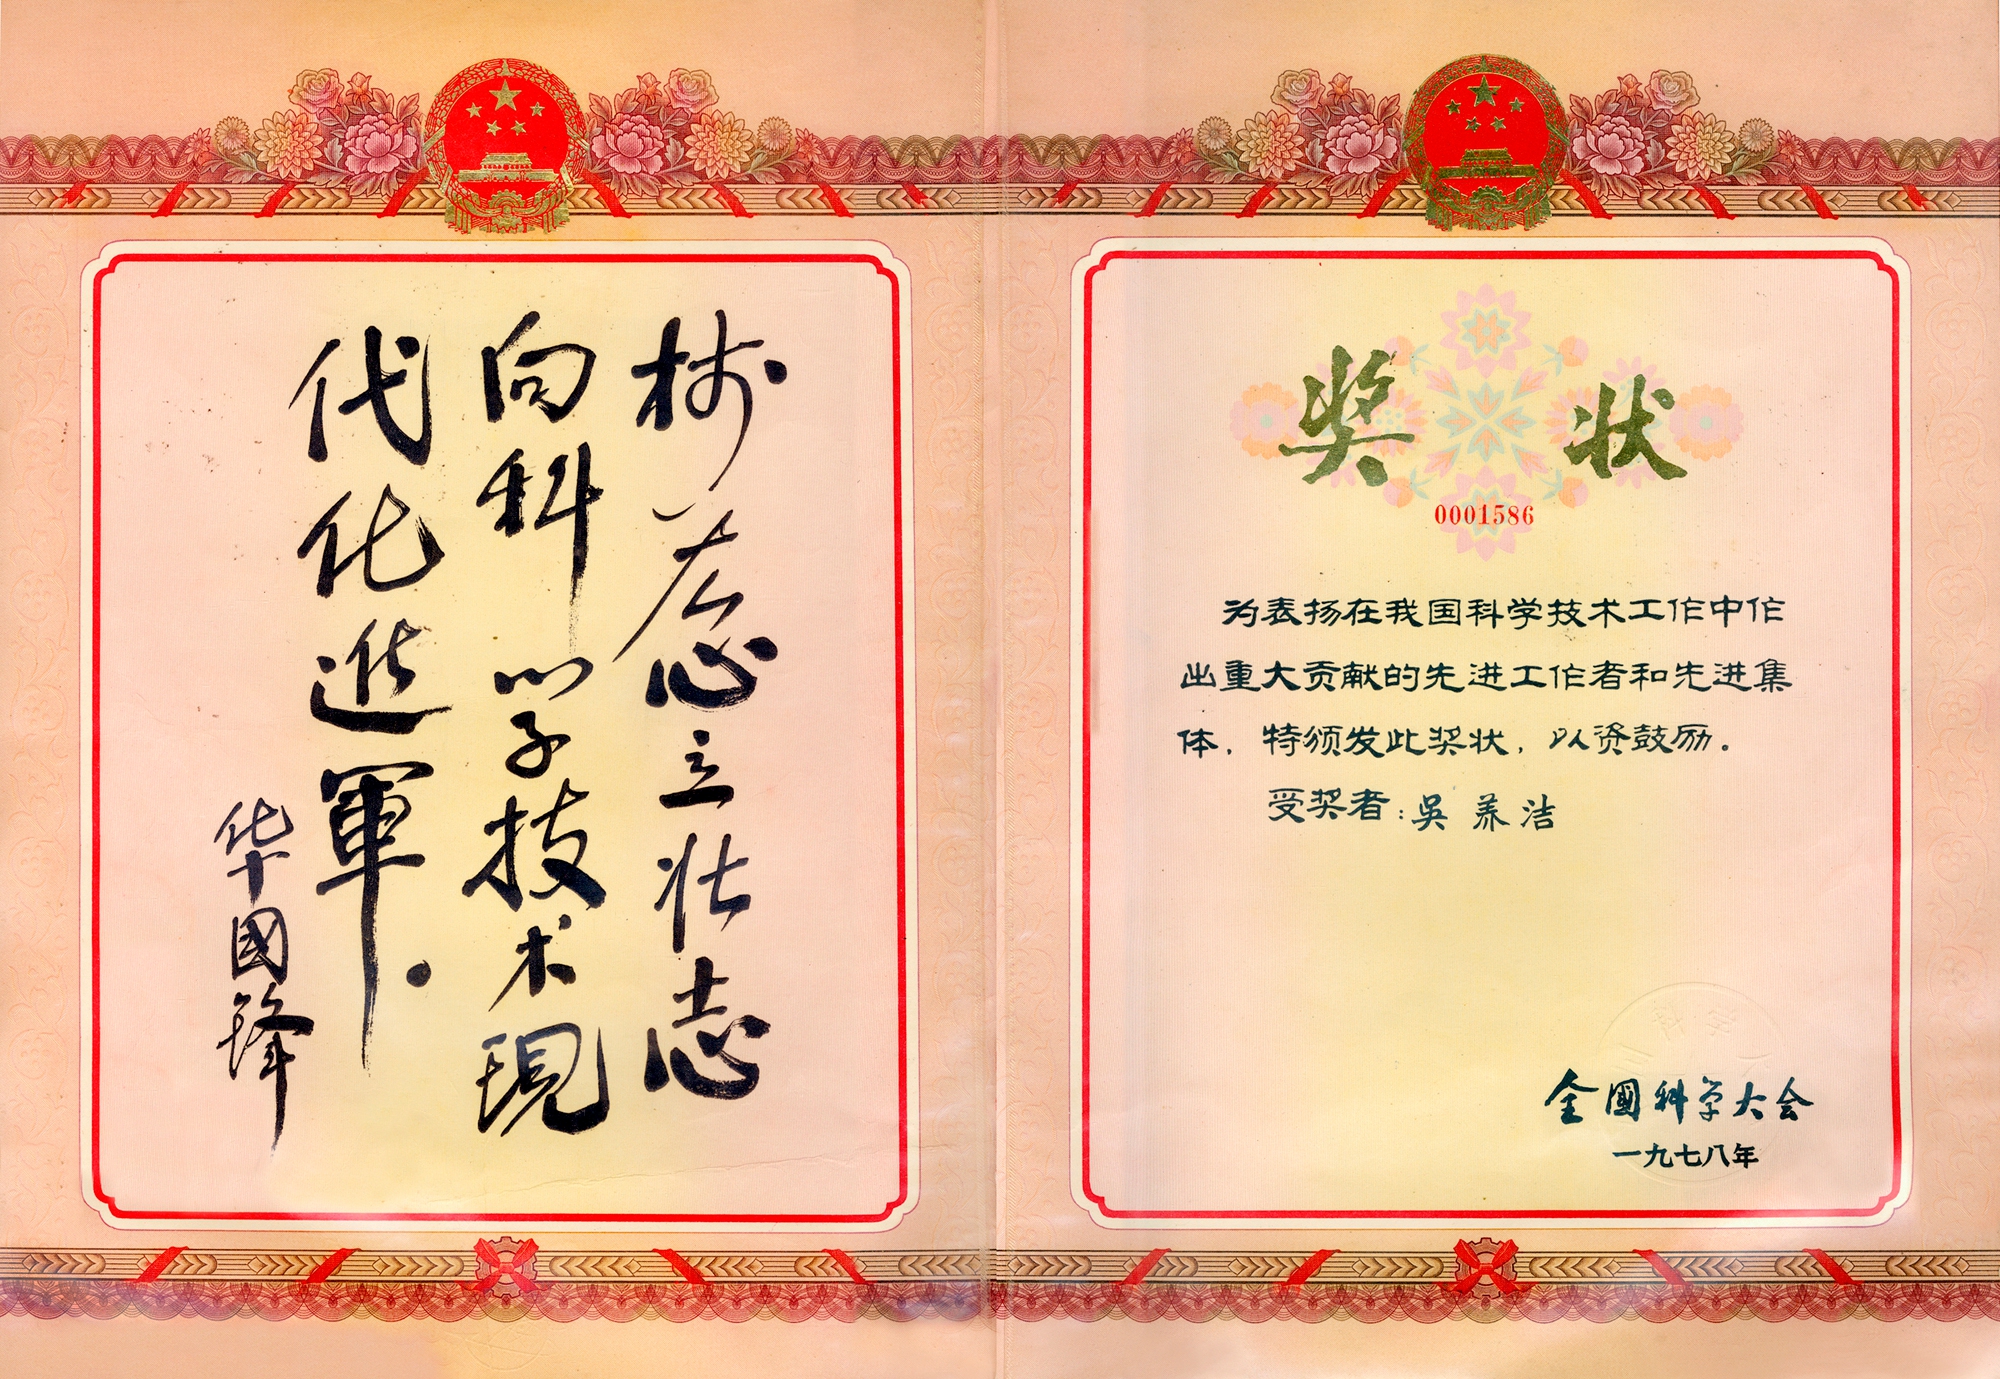 树雄心立壮志
向科学技术现
代化進軍.
华國锋
奖状
0001586
为表扬在我国科学技术工作中作
出重大贡献的先进工作者和先进集
体，特颁发此奖状，以资鼓励。
受奖者：吳养洁
全國科学大会
一九七八年